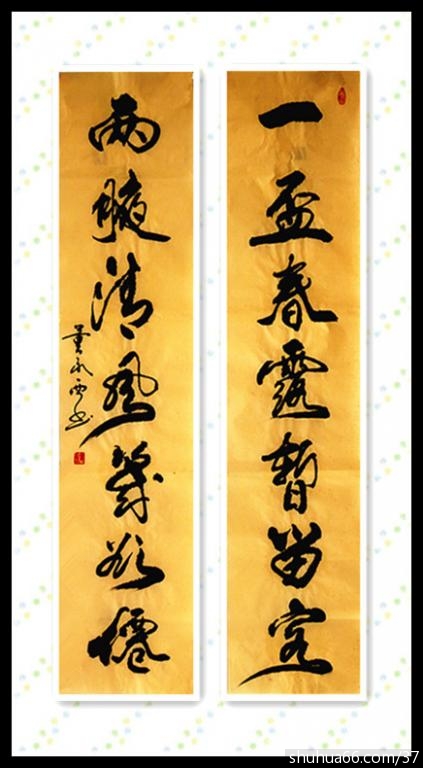 一盃春露暫留客
兩腋清風幾欲僊
shuhua66.com/37